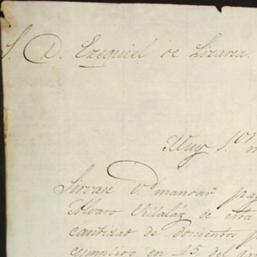 S. D. Ezequiel de Lizarza.
Muy S.or m
Sirvase Vd mandar pag
Alvaro Villalaz de esta
cantidad de doscientos p
cumplido en 15 de